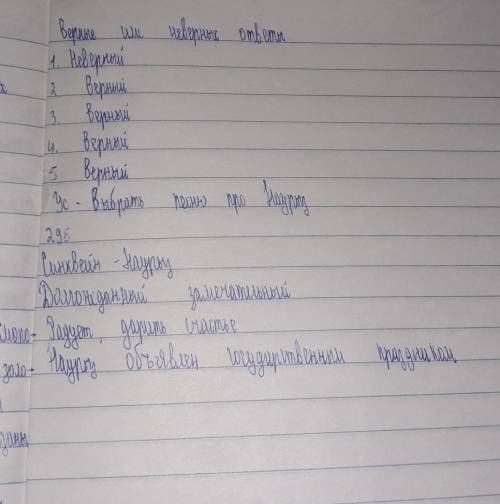 Верные или неверные ответы
1. Неверный
2 Верный
3. Верный
4. Верный
5 Верный
Ус - Выбрать песню про Наурыз
295
Синквейн - Наурыз
Долгожданный замечательный
Радует, дарить счастье
золо- Наурыз объявлен государственным праздником
даны